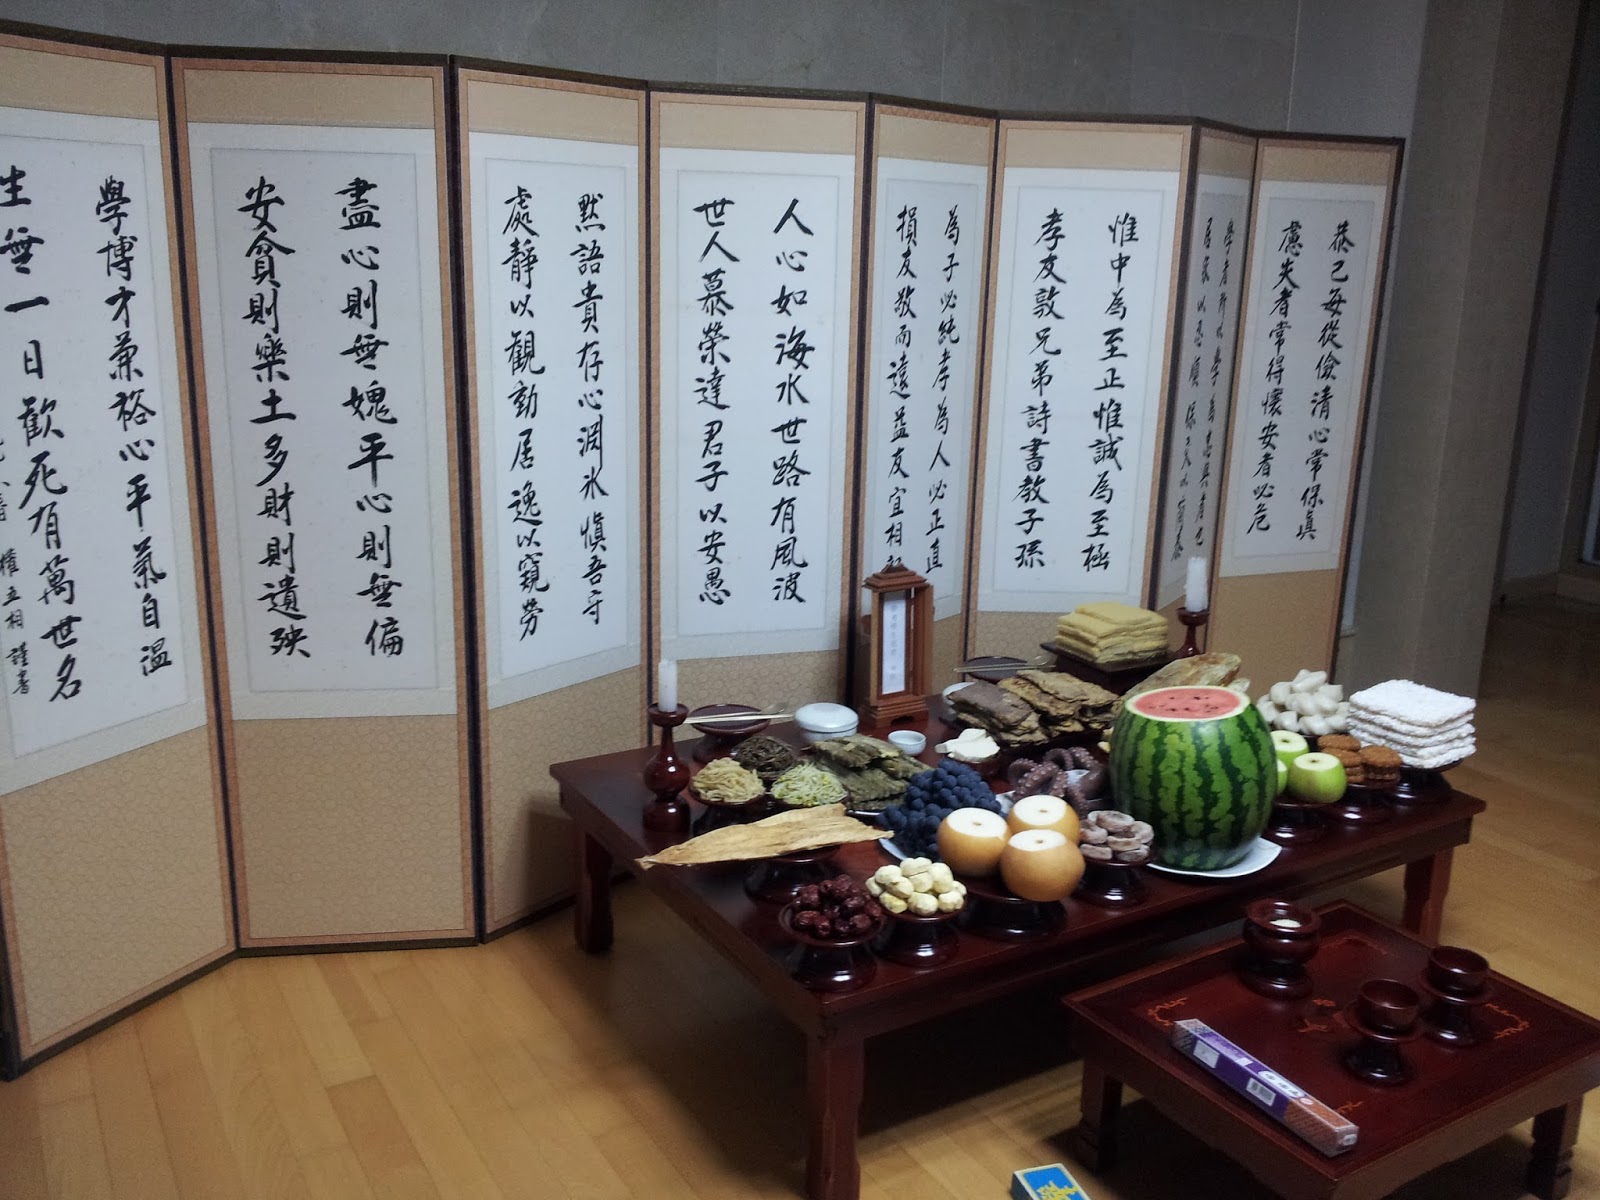 恭己每從儉清心常保眞
慮失者常得懷安者必危
惟中為至正惟誠為至極
孝友敦兄弟詩書教子孫
為子必純孝為人必正直
損友敬而遠益友宜相
人心如海水世路有風波
世人慕榮達君子以安愚
黙語貴存心淵氷愼吾守
處靜以觀動居逸以窺勞
盡心則無愧平心則無偏
安貧則樂土多財則遺殃
學博才兼裕心平氣自溫
生無一日歡死有萬世名
權五相 謹書